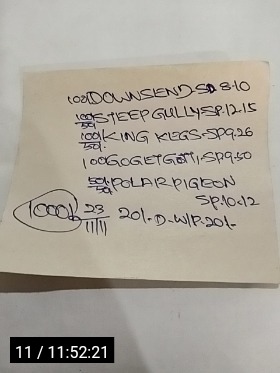 100 DOWNSEND-SP 8.10
100/50 STEEPGULLY SP.12.15
100/50 KING KLEGS-SP9.26
100 GOGETGOTTI-SP9.50
50/50 POLARPIGEON
SP.10.12
1000/ 23/11/11 20/-D-W/P-20/-
11 / 11:52:21